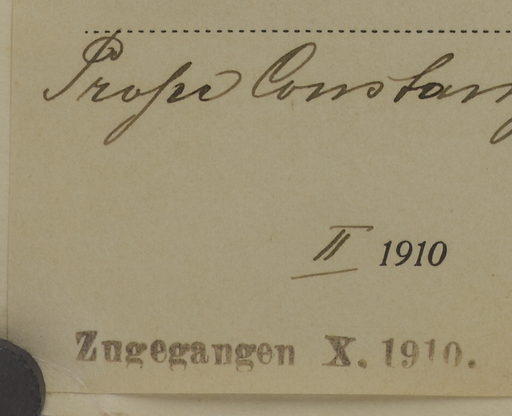 Prope Constan
II 1910
Zugegangen X. 1910.